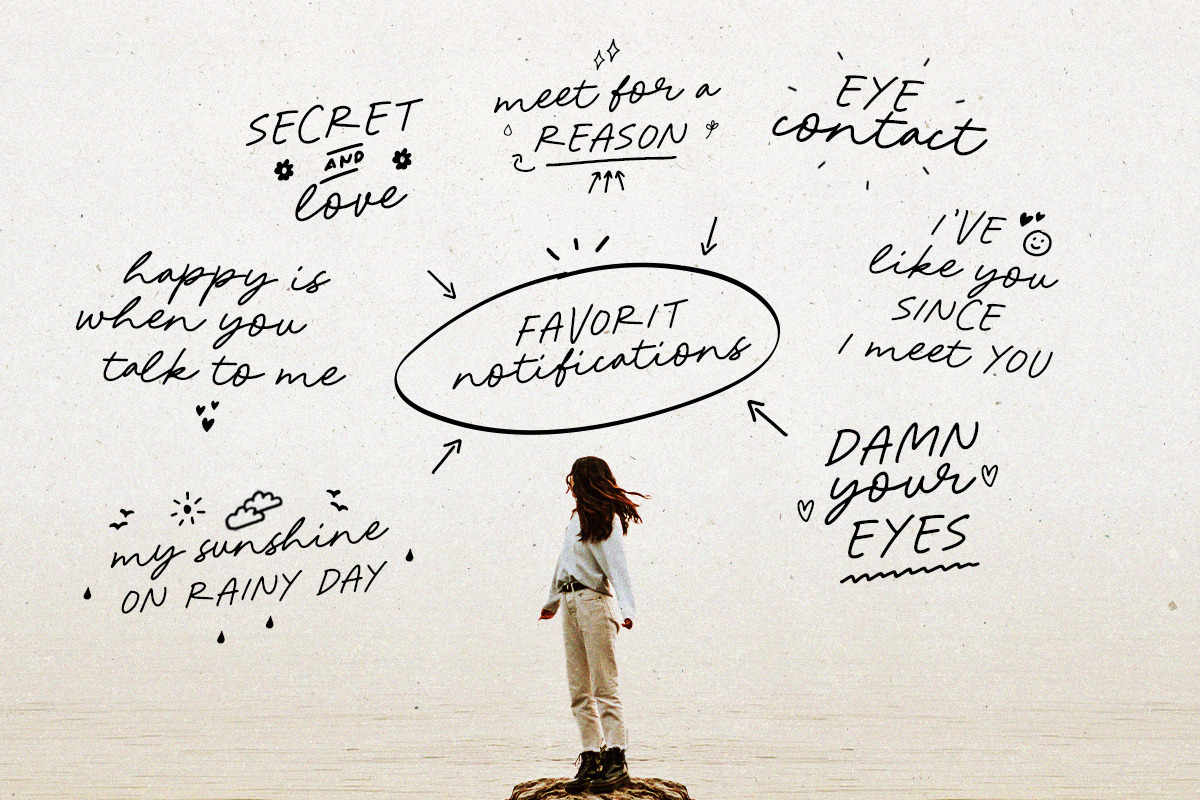 SECRET
AND
love
meet for a
REASON
EYE
contact
happy is
when you
talk to me
FAVORIT
notifications
I'VE
like you
SINCE
I meet YOU
my sunshine
ON RAINY DAY
DAMN
your
EYES